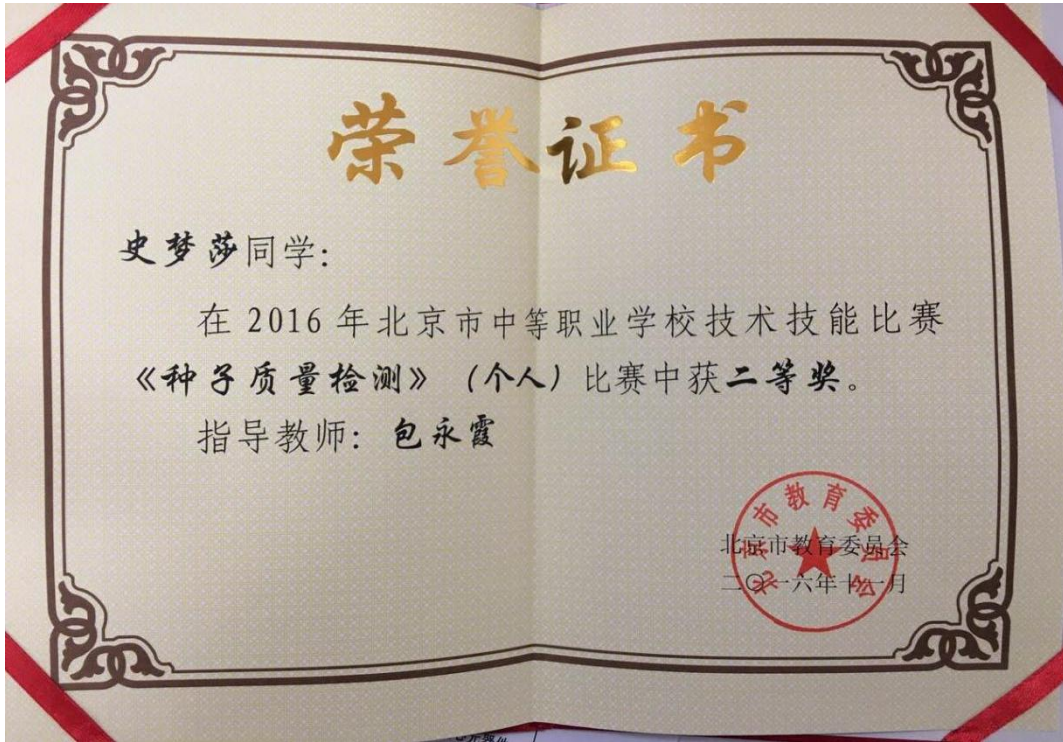 荣誉证书
史梦莎同学:
在 2016 年北京市中等职业学校技术技能比赛
《种子质量检测》（个人）比赛中获二等奖。
指导教师: 包永霞
北京市教育委员会
北京市教育委员会
二〇一六年十一月